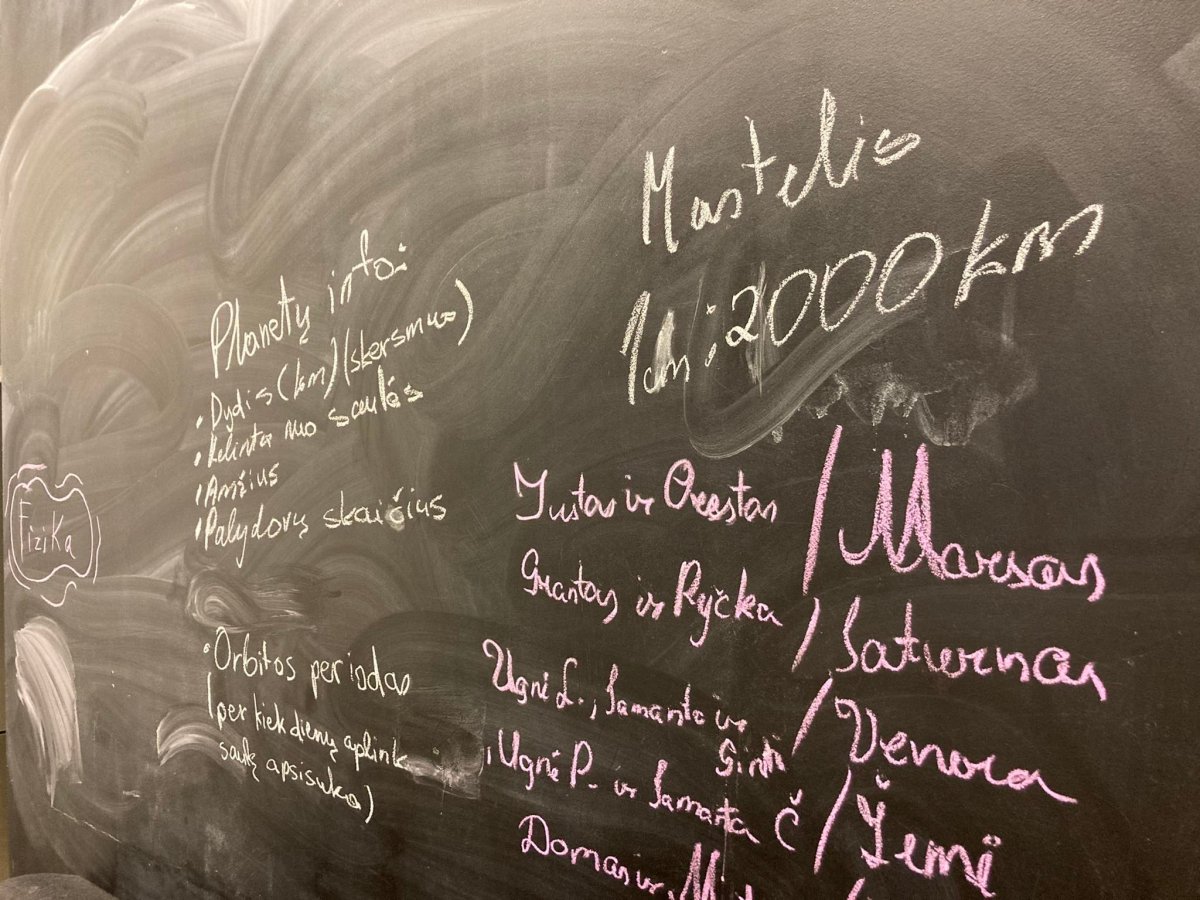 Mastelis
1cm : 2000 km
Planetų info:
• Dydis (km) (skersmuo)
• Kelinta nuo saulės
• Amžius
• Palydovų skaičius
• Orbitos periodas
(per kiek dienų aplink
saulę apsisuka)
Fizika
Justas ir Orestas / Marsas
Grantas ir Ryčka / Saturnas
Ugnė L., Samanta ir
Gintė / Venera
Ugnė P. ir Samanta Č / Žemė
Domas ir